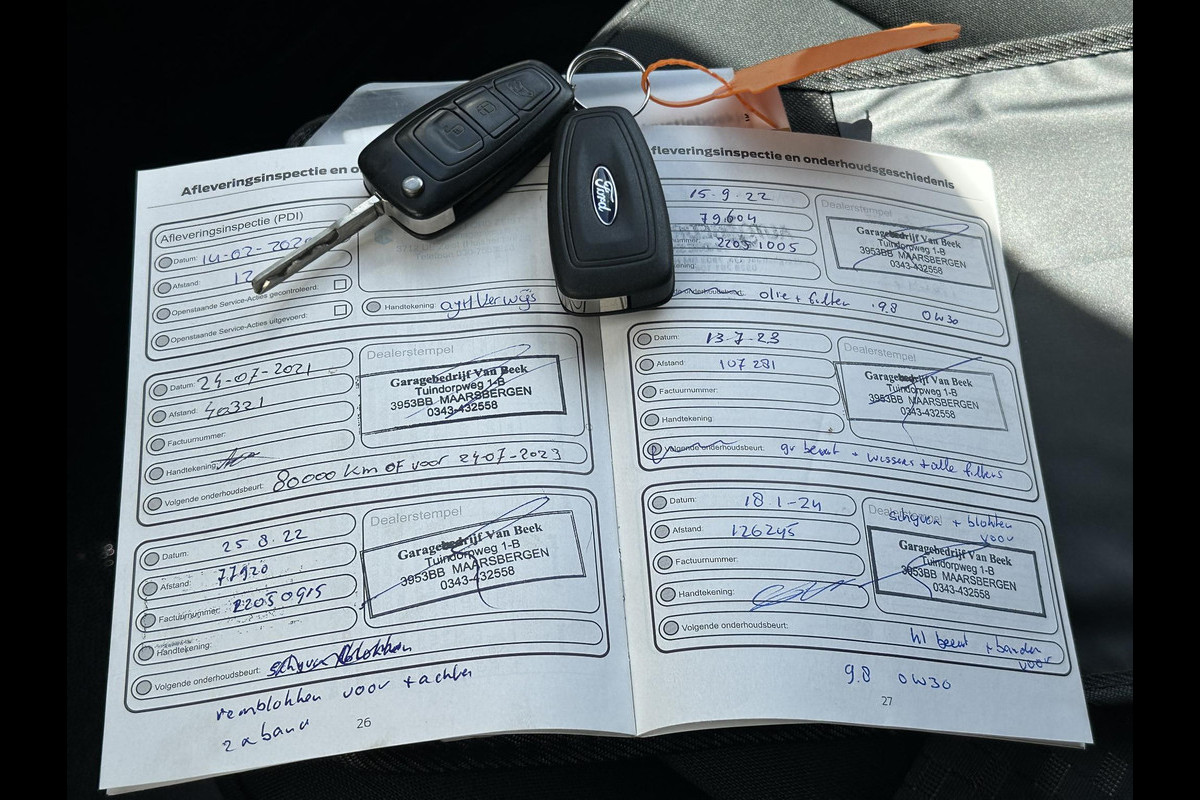 Afleveringsinspectie en o
Afleveringsinspectie (PDI)
Datum: 14-02-202
Afstand: 12
Openstaande Service-Acties gecontroleerd:
Openstaande Service-Acties uitgevoerd:
Handtekening:
Datum: 24-07-2021
Afstand: 40321
Factuurnummer:
Handtekening:
Volgende onderhoudsbeurt: 80000 km of voor 24-07-2023
Dealerstempel
Garagebedrijf Van Beek
Tuindorpweg 1-B
3953BB MAARSBERGEN
0343-432558
Datum: 25 8. 22
Afstand: 77920
Factuurnummer: 22050915
Handtekening:
Volgende onderhoudsbeurt: schyven blokken
remblokken voor + achter
2 a band
Dealerstempel
Garagebedrijf Van Beek
Tuindorpweg 1-B
3953BB MAARSBERGEN
0343-432558
26
Ford
fleveringsinspectie en onderhoudsgeschiedenis
15-9-22
79604
nummer: 22051005
olie + filter 9.8 0W30
Dealerstempel
Garagebedrijf Van Beek
Tuindorpweg 1-B
3953BB MAARSBERGEN
0343-432558
Datum: 13-7-23
Afstand: 107281
Factuurnummer:
Handtekening:
Volgende onderhoudsbeurt: gr beurt + wissers + alle filters
Dealerstempel
Garagebedrijf Van Beek
Tuindorpweg 1-B
3953BB MAARSBERGEN
0343-432558
Datum: 18 1-24
Afstand: 126245
Factuurnummer:
Handtekening:
Volgende onderhoudsbeurt:
Dealerstempel
schyven + blokken
voor
Garagebedrijf Van Beek
Tuindorpweg 1-B
3953BB MAARSBERGEN
0343-432558
kl beurt + banden
voor
9.8 0W30
27